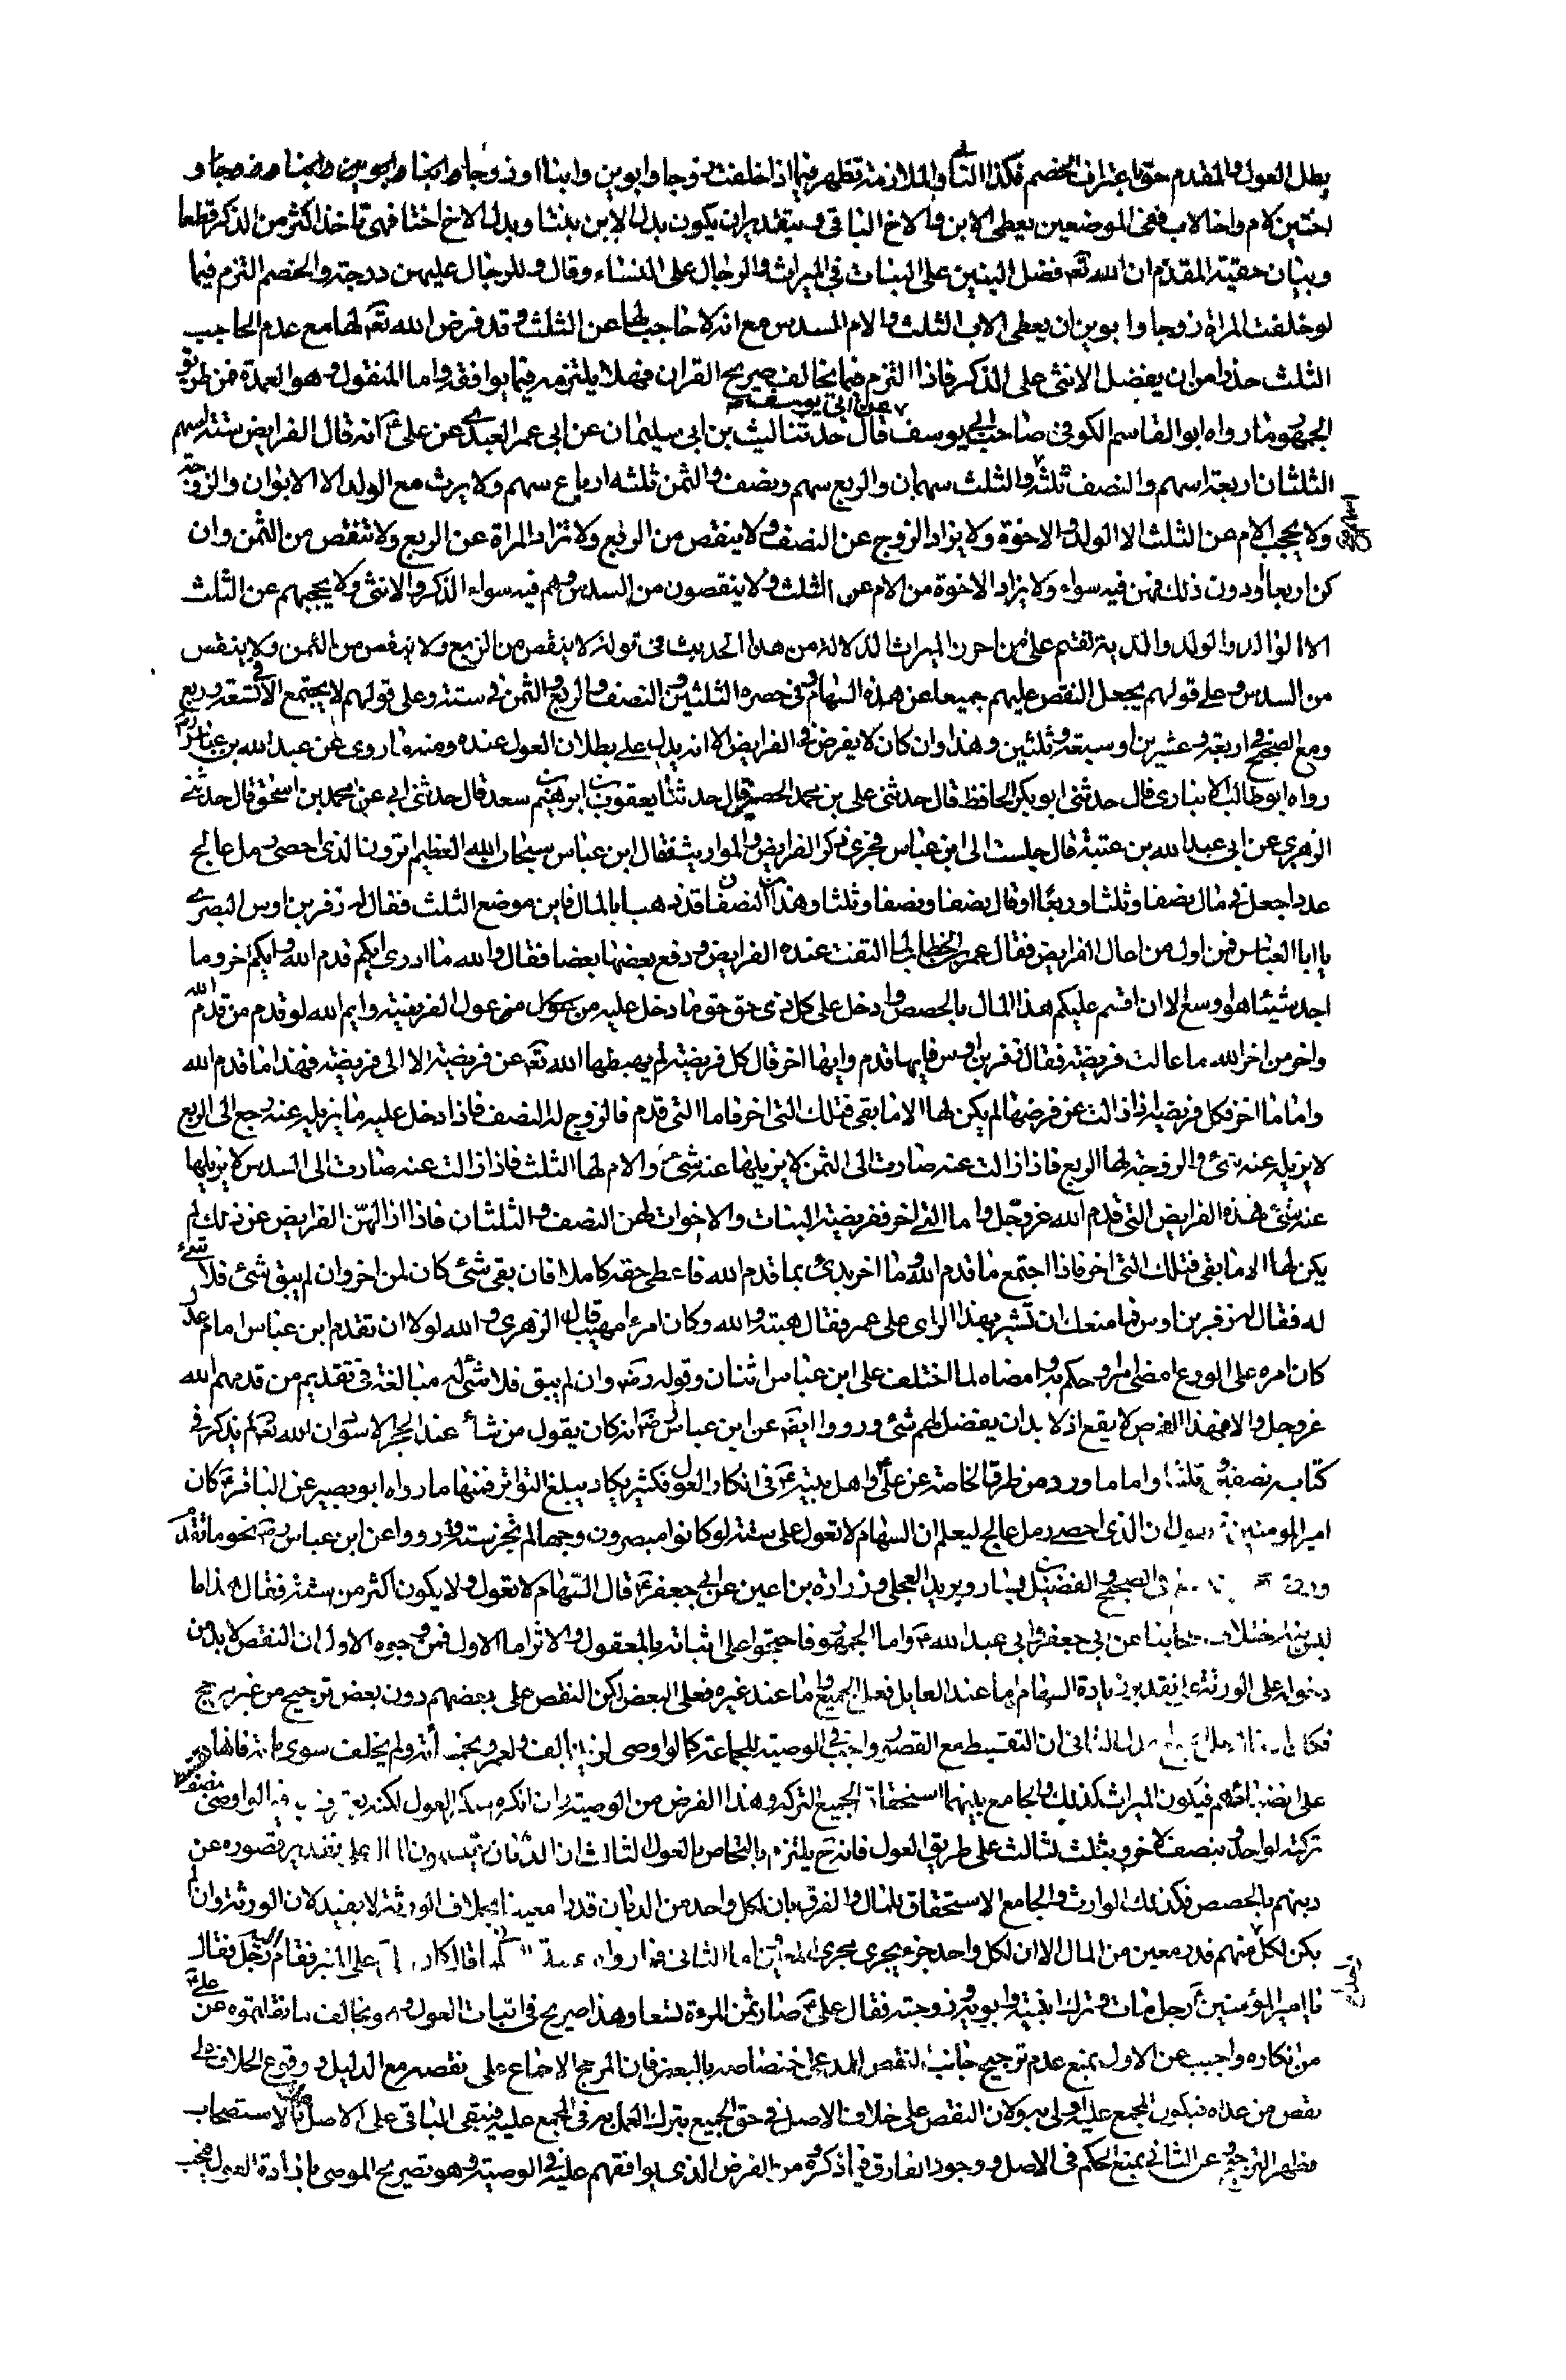 بطل العول والمقدم حق باعتراف الخصم فكذا التالى والملازمة تظهر فيما اذا خلفت زوجا وابوين وابنا او زوجا
اختين لام واخا لاب ففى الموضعين يعطى الابن والاخ الباقى وبتقدير ان يكون بدل الابن بنتا وبدل الاخ اختا فهى تاخذ اكثر من الذكر قطعا
وبيان حقية المقدم ان الله تعم فضل البنين على البنات فى الميراث والرجال على النساء وقال وللرجال عليهن درجة والخصم التزم فيما
لو خلفت المراة زوجا وابوين ان يعطى الاب الثلث والام السدس مع انه لا حاجب لها عن الثلث وقد فرض الله تعم لها مع عدم الحاجب
الثلث حذرا من ان يفضل الانثى على الذكر فاذا التزم فيما يخالف صريح القران فهلا يلتزمه فيما يوافقه واما المنقول وهو العمدة فمن طريق
الجمهور ما رواه ابو القاسم الكوفى صاحب ابى يوسف عن ابى يوسف قال حدثنا ليث بن ابى سليمان عن ابى عمر العبدى عن على ع انه قال الفرايض ستة اسهم
الثلثان اربعة اسهم والنصف ثلثة والثلث سهمان والربع سهم ونصف والثمن ثلثه ارباع سهم ولا يرث مع الولد الا الابوان والزوج
ولا يحجب الام عن الثلث الا الولد والاخوة ولا يزاد الزوج عن النصف ولا ينقص من الربع ولا تزاد المراة عن الربع ولا تنقص من الثمن وان
كن اربعا او دون ذلك فهن فيه سواء ولا يزاد الاخوة من الام عن الثلث ولا ينقصون من السدس وهم فيه سواء الذكر والانثى ولا يحجبهم عن الثلث
الا الوالد والولد والدية تقسم على من احرز الميراث الدلالة من هذا الحديث فى قوله لا ينقص من الربع ولا ينقص من الثمن ولا ينقص
من السدس وعلى قولهم يجعل النقص عليهم جميعا عن هذه السهام وفى حصره الثلثين والنصف والربع والثمن فى ستة وعلى قولهم لا يجتمع الا فى تسعة وربع
ومع الصحيح فى اربعة وعشرين او سبعة وثلثين وهذا وان كان لا يفرض فى الفرايض الا انه يدل على بطلان العول عنده ومنه ما روى عن عبد الله بن عباس
رواه ابو طالب الانبارى قال حدثنى ابو بكر الحافظ قال حدثنى على بن محمد الحصينى قال حدثنا يعقوب بن ابرهيم بن سعد قال حدثنى ابى عن محمد بن اسحق قال حدثنى
الزهرى عن ابى عبد الله بن عتبة قال جلست الى ابن عباس فجرى ذكر الفرايض والمواريث فقال ابن عباس سبحان الله العظيم اترون الذى احصى رمل عالج
عددا جعل فى مال نصفا وثلثا وربعا او قال نصفا ونصفا وثلثا وهذان النصفان قد ذهبا بالمال فاين موضع الثلث فقال له زفر بن اوس البصرى
يا ابا العباس فمن اول من اعال الفرايض فقال عمر بن الخطاب لما التفت عنده الفرايض ودفع بعضها بعضا فقال والله ما ادرى ايكم قدم الله وايكم اخر وما
اجد شيئا هو اوسع الا ان اقسم عليكم هذا المال بالحصص وادخل على كل ذى حق حق ما دخل عليه من عول الفريضة وايم الله لو قدم من قدم الله
واخر من اخر الله ما عالت فريضة فقال زفر بن اوس فايها قدم وايها اخر قال كل فريضة لم يهبطها الله تعم عن فريضة الا الى فريضة فهذا ما قدم الله
واما ما اخر فكل فريضة اذا زالت عن فرضها لم يكن لها الا ما بقى فتلك التى اخر فاما التى قدم فالزوج له النصف فاذا دخل عليه ما يزيله عنه رجع الى الربع
لا يزيله عنه شئ والزوجة لها الربع فاذا زالت عنه صارت الى الثمن لا يزيلها عنه شئ والام لها الثلث فاذا زالت عنه صارت الى السدس لا يزيلها
عنه شئ فهذه الفرايض التى قدم الله عز وجل واما التى اخر ففريضة البنات والاخوات لهن النصف والثلثان فاذا ازالتهن الفرايض عن ذلك لم
يكن لها الا ما بقى فتلك التى اخر فاذا اجتمع ما قدم الله وما اخر بدئ بما قدم الله فاعطى حقه كاملا فان بقى شئ كان لمن اخر وان لم يبق شئ فلا شئ
له فقال له زفر بن اوس فما منعك ان تشير بهذا الراى على عمر فقال هبته والله وكان امرءا مهيبا قال الزهرى والله لولا ان تقدم ابن عباس امام عدل
كان امره على الورع امضى امرا وحكم به وامضاه لما اختلف على ابن عباس اثنان وقوله رض وان لم يبق فلا شئ له مبالغة فى تقديم من قدمهم الله
عز وجل والا فهذا الفرض لا يقع اذ لا بد ان يفضل لهم شئ ورووا ايضا عن ابن عباس رض انه كان يقول من شاء عند الحجر الاسود ان الله تعم لم يذكر فى
كتابه نصفين وثلثا واما ما ورد من طرق الخاصة عن على واهل بيته ع فى انكار العول فكثير يكاد يبلغ التواتر فمنها ما رواه ابو بصير عن الباقر ع كان
امير المومنين ع يقول ان الذى احصى رمل عالج ليعلم ان السهام لا تعول على ستة لو كانوا مبصرون وجهها لم تجز ستة ورووا عن ابن عباس رض نحو ما تقدم
فى الصحيح الفضيل بن يسار وبريد العجلى وزرارة بن اعين عن ابى جعفر ع قال السهام لا تعول ولا يكون اكثر من ستة فقال هذا ما
ليس فيه اختلاف اصحابنا عن ابى جعفر وابى عبد الله ع واما الجمهور فاحتجوا على اثباته بالمعقول والاثر اما الاول فمن وجوه الاول ان النقص لا بد من
دخوله على الورثة بتقدير زيادة السهام اما عند العايل فعلى الجميع واما عند غيره فعلى البعض لكن النقص على بعضهم دون بعض ترجيح من غير مرجح
الثانى ان التقسيط مع القصور واجب فى الوصية للجماعة كما لو اوصى لزيد بالف ولعمرو بخمسمائة ولم يخلف سوى
على نصيبهم فيكون الميراث كذلك والجامع بينهما استحقاق الجميع التركة وهذا الفرض من الوصية وان انكره منكر العول لكنه
تركته لواحد وبنصف لاخر وبثلث لثالث على طريق العول فانه ح يلتزم بالتحاص بالعول الثالث ان الديان يقتسمون المال على تقدير قصوره عن
دينهم بالحصص فكذلك الوارث والجامع الاستحقاق للمال والفرق بان لكل واحد من الديان قدرا معينا بخلاف الورثة لا يفيد لان الورثة وان لم
يكن لكل منهم قدر معين من المال الا ان لكل واحد جزء يجرى مجرى المعين واما الثانى فما رواه عبيدة قال كان على ع على المنبر فقام اليه رجل فقال
يا امير المؤمنين رجل مات وترك ابنتيه وابويه وزوجته فقال على ع صار ثمن المرءة تسعا وهذا صريح فى اثبات العول ويخالف ما نقلتموه عن على ع
من انكاره واجيب عن الاول بمنع عدم ترجيح جانب النقص المدعى اختصاصه بالبعض فان المرجح الاجماع على نقصه مع الدليل ووقوع الخلاف فى
نقص من عداه فيكون المجمع عليه اولى به ولان النقص على خلاف الاصل فى حق الجميع يترك العمل به فى المجمع عليه فيبقى الباقى على الاصل بالاستصحاب
فظهر الترجيح وعن الثانى بمنع الحكم فى الاصل ووجود الفارق فيما ذكروه من الفرض الذى يوافقهم عليه فى الوصية وهو تصريح الموصى بارادة العول فيجب